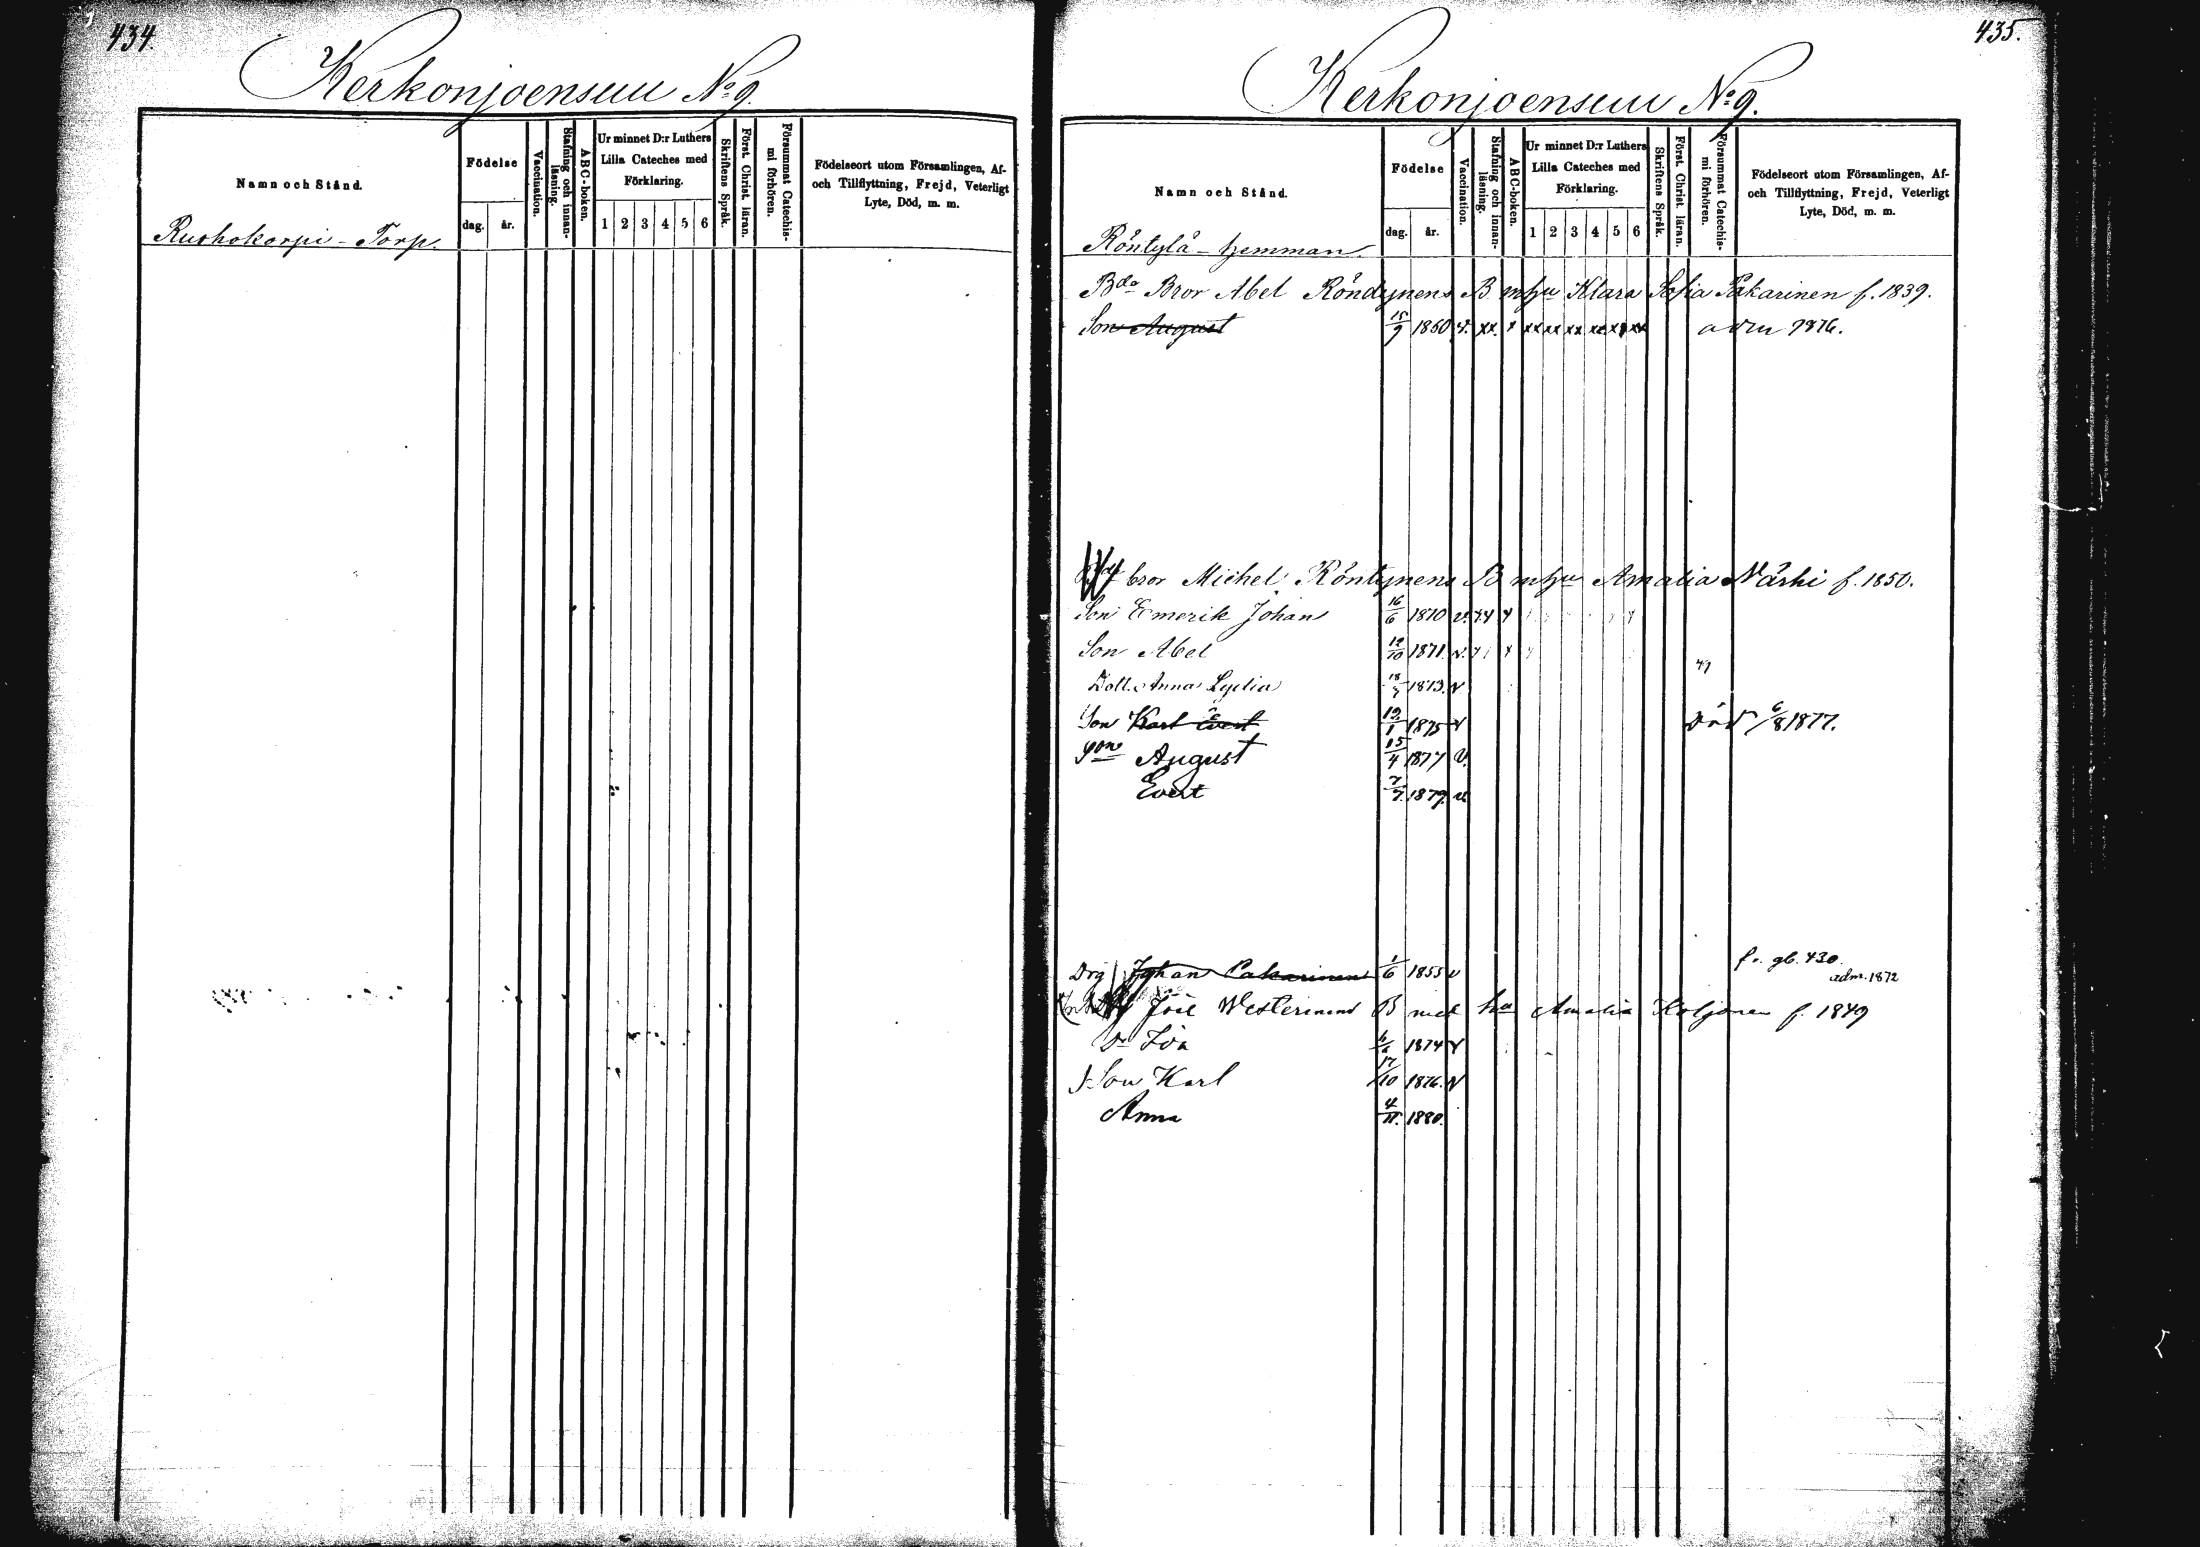 434.
Kerkonjoensuu No 9.
Namn och Stånd.
Födelse
dag.
år.
Vaccination.
Stafning och innanläsning.
ABC-boken.
Ur minnet D:r Luthers
Lilla Cateches med
Förklaring.
1 2 3 4 5 6
Skriftens Språk.
Först. Christ. läran.
Försummat Catechismi förhören.
Födelseort utom Församlingen, Af-
och Tillflyttning, Frejd, Veterligt
Lyte, Död, m. m.
Torp.
435.
Kerkonjoensuu No 9.
Namn och Stånd.
Födelse
dag.
år.
Vaccination.
Stafning och innanläsning.
ABC-boken.
Ur minnet D:r Luthers
Lilla Cateches med
Förklaring.
1 2 3 4 5 6
Skriftens Språk.
Först. Christ. läran.
Försummat Catechismi förhören.
Födelseort utom Församlingen, Af-
och Tillflyttning, Frejd, Veterligt
Lyte, Död, m. m.
Röntylä - hemman.
Bde Bror Abel Röndynens B m hu Klara Sofia Pakarinen f. 1839.
Son August 15/9 1860 v. xx x xx xx xx xx xx xx adm 1876.
bror Michel Röntynens B m hu Amalia Närhi f. 1850.
Son Emerik Johan 16/6 1870 v.
Son Abel 12/10 1871 v.
Dott. Anna Lydia 1873. v
Son Karl Evert 12/1 1875 v död 6/8 1877.
Son August 15/4 1877 v.
Evert 7/7 1879. v
Drg Johan Pakarinen 1/6 1855 v fr. gb. 430. adm. 1872
Westerinens B med hu Amalia Koljonen f. 1849
1874 v
Son Karl 17/10 1876. v
Anna 4/11. 1880.